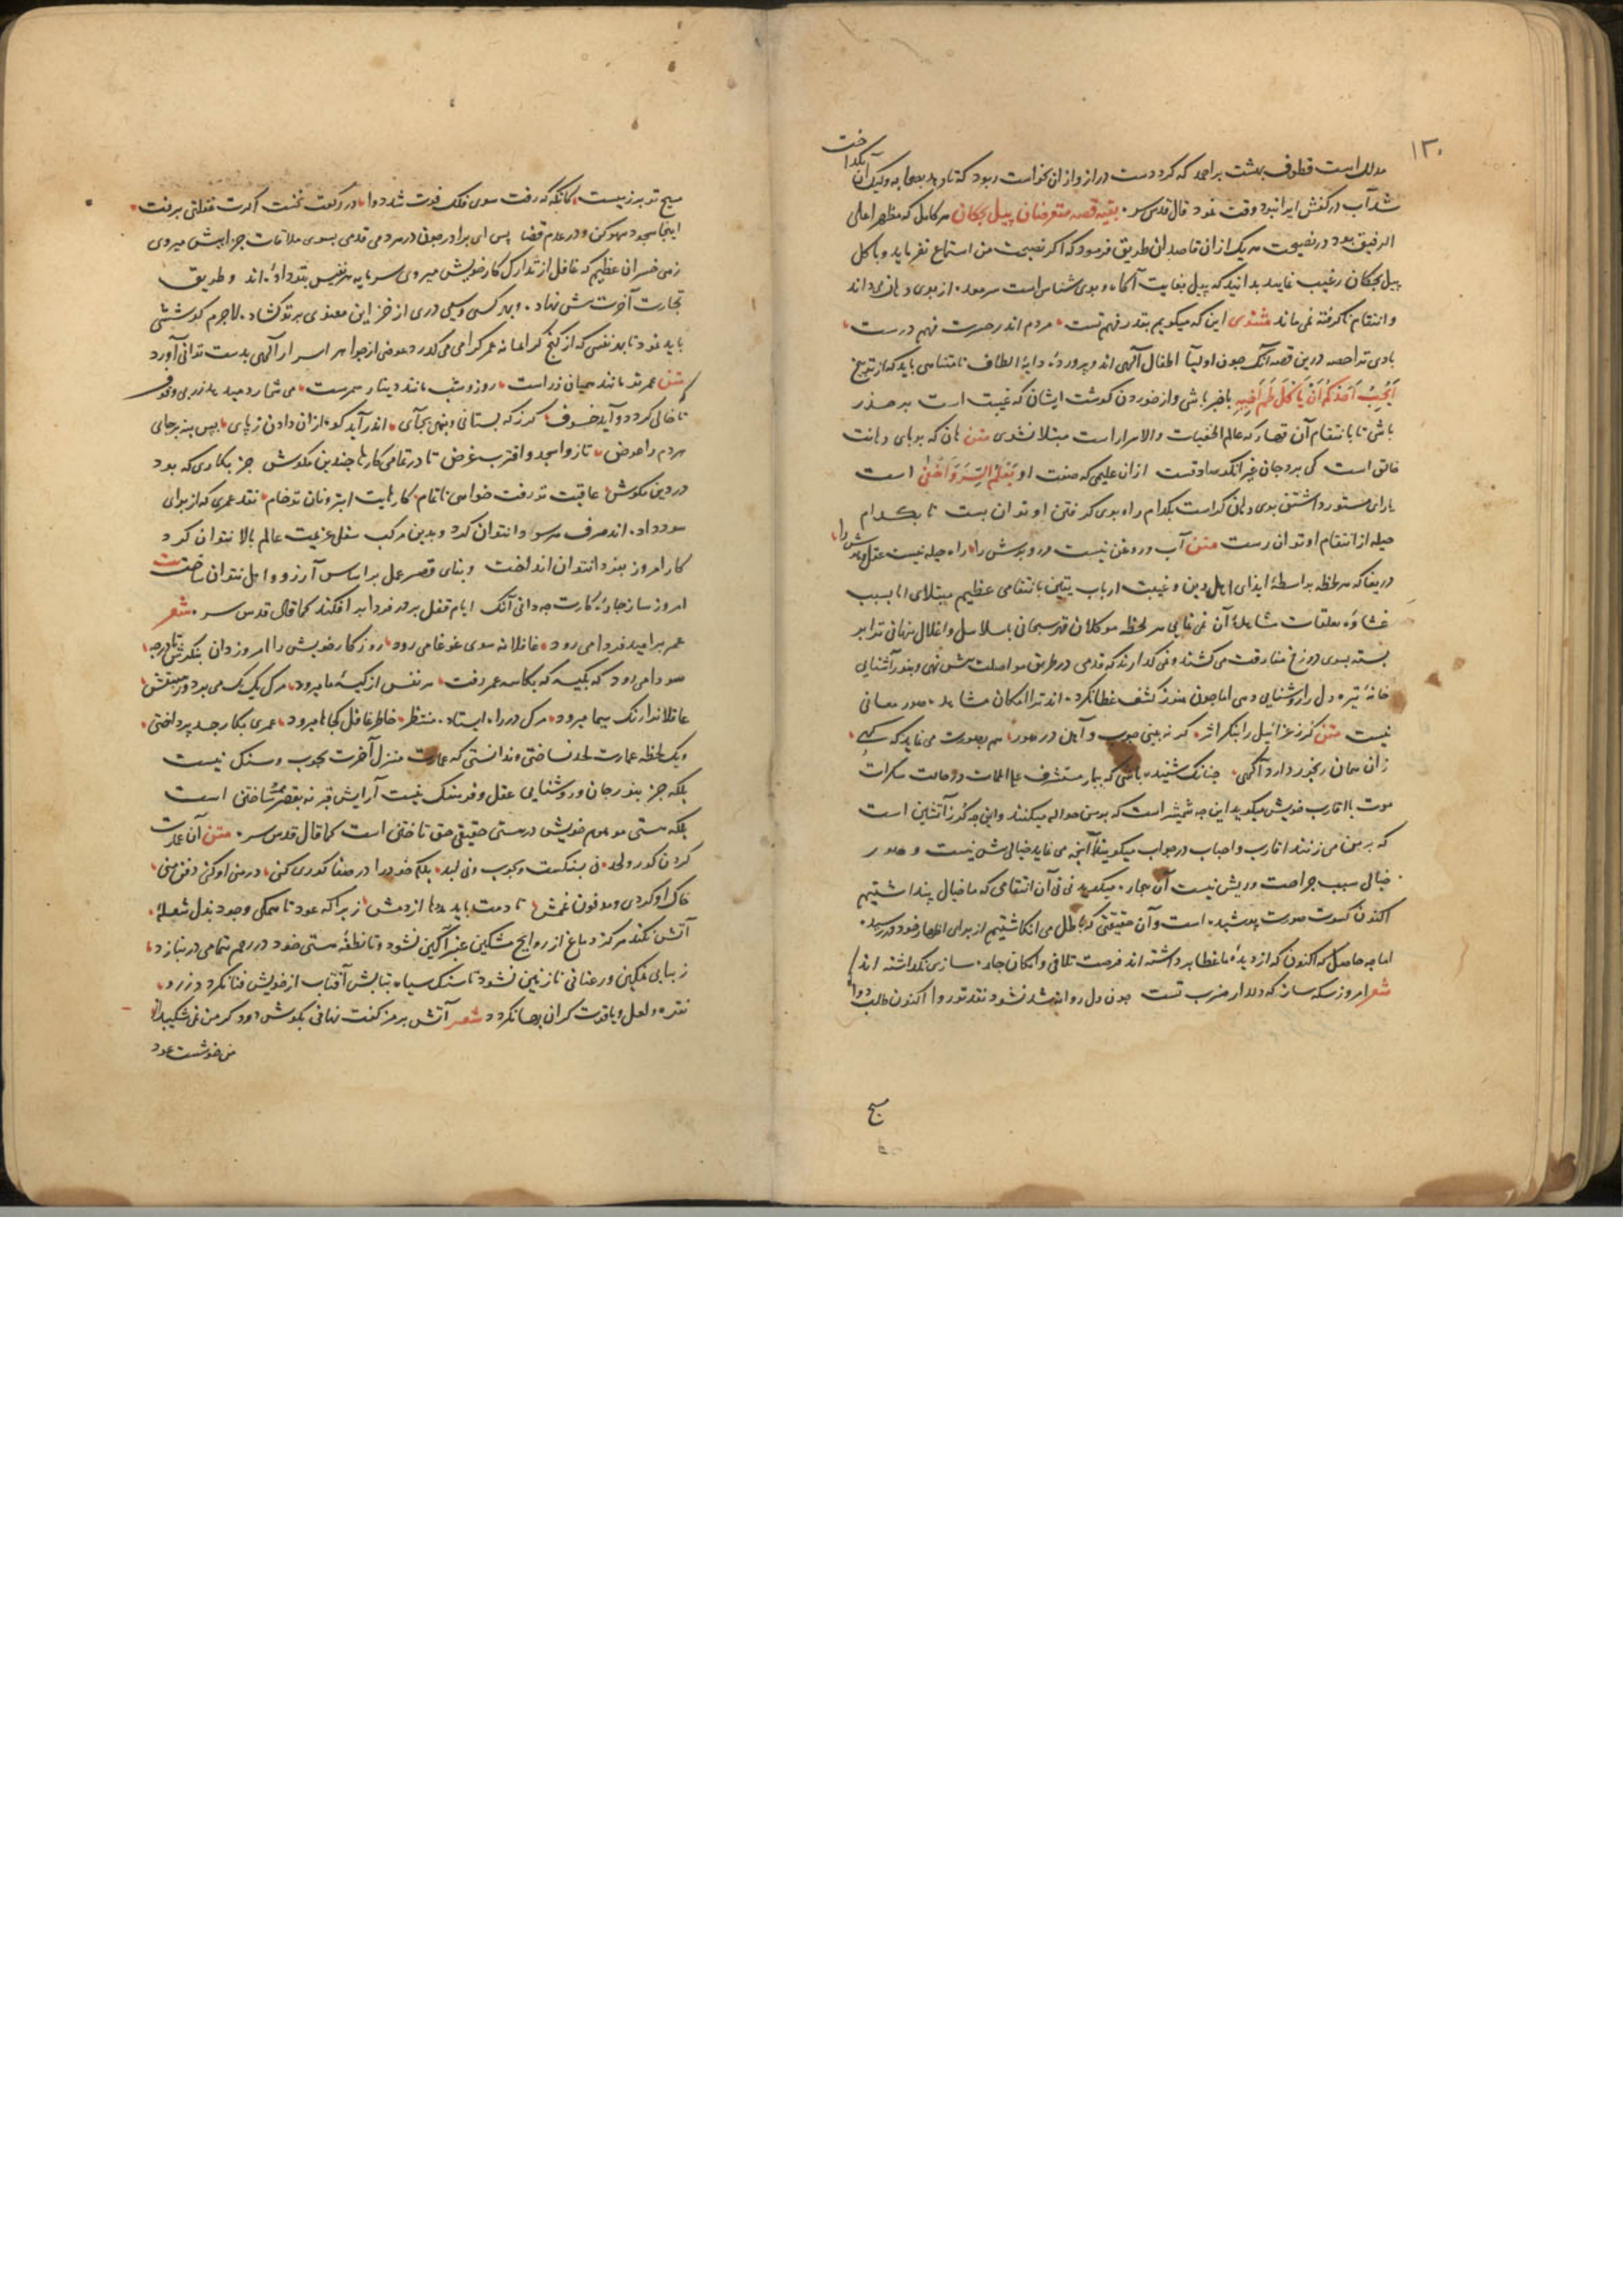 ۱۳۰
است قطوف بهشت بر احمد که کرد دست دراز و از ان نخواست ربود که تا
شد آب در کفش ایرا نبود وقت نمود قال قدس سره بقیه قصه متعرضان پیل بچکان هر کامل که مظهر اعلی
الرفیق بود در نصیحت هر یک از ان قاصدان طریق فرمود که اگر نصیحت من استماع نفرماید و باکل
پیل بچکان رغبت نماید بدانید که پیل بغایت آگاه و بوی شناس است از بوی دهان می داند
و انتقام ناگرفته نمی ماند مثنوی این که میکویم بقدر فهم تست مردم اندر حسرت فهم درست
درین قصه آنکه چون اولیا اطفال الهی اند و پرورده دایه الطاف نامتناهی باید که از توبیخ
اَیُحِبُّ اَحَدُکُمْ اَنْ یَأکُلَ لَحْمَ اَخِیهِ باخبر باشی و از خوردن کوشت ایشان که غیبت است بر حذر
باشی تا بانتقام آن قهار که عالم الخفیات والاسرار است مبتلا نشوی متن هان که بویای دهانت
خالق است کی برد جان غیر آنکو صادقست از ان علیمی که صفت او یَعْلَمُ السِّرَّ وَاَخْفٰی است
یارای مستور داشتن بوی دهان کراست بکدام راه بوی کر فتن او توان بست تا بکدام
حیله از انتقام او توان رست متن آب و روغن نیست مر روپوش را راه حیله نیست عقل و هوش را
دریغا که هر لحظه بواسطه ایذای اهل دین و غیبت ارباب یقین بانتقامی عظیم مبتلای اما بسبب
غشاوه تعلقات مشاهده آن نمی نمایی هر لحظه موکلان قهر سبحانی بسلاسل و اغلال پنهانی ترا بر
بسته بسوی دوزخ مفارقت می کشند و نمی کذارند که قدمی در طریق مواصلت پیش نهی و بنور آشنایی
خانه تیره دل را روشنایی دهی اما چون هنوز کشف غطا نکرده اند ترا امکان مشاهده صور معانی
نیست متن گرز عزرائیل را بنگر اثر کر نه بینی چوب و آهن در صور هم بصورت می نماید که کهی
زان همان رنجور دارد آگهی چنانک شنیده باشی که بیمار مستشرف علی الممات در حالت سکرات
موت با اقارب خویش میکوید این چه شمشیر است که بر من حواله میکنند و این چه گرز آتشین است
که بر من می زنند اقارب و احباب در جواب میکویند آنچه می نماید خیالی بیش نیست و صور
خیال سبب جراحت و ریش نیست آن بیمار میکوید نی نی آن انتقامی که ما خیال پنداشتیم
اکنون کسوت صورت پوشیده است و آن حقیقتی که باطل می انکاشتیم از برای اظهار خود در رسیده
اما چه حاصل که اکنون که از دیده ما غطا برداشته اند فرصت تلافی و امکان چاره سازی نکذاشته اند
شعر امروز سکه ساز که دلدار ضرب تست چون دل روانه شد نشود نقد تو روا اکنون طلب دوا
مسیح
مسیح تو بر زمیست کانکه که رفت سوی فلک فوت شد دوا در رکعت نخست اکرت غفلتی برفت
اینجا سجود سهو کن و در عدم قضا پس ای برادر چون در هر دمی قدمی بسوی ملاقات جزایش میروی
زهی خسران عظیم که غافل از تدارک کار خویش میروی سرمایه هر نفیس بتو داده اند و طریق
تجارت آخرت پیش نهاد و بهر کسی و سیمی دری از خزاین معنوی بر تو کشاد لاجرم کوششی
باید نمود تا بهر نفسی که از گنج عمر کرامی می کذرد عوض از جواهر اسرار الهی بدست توانی آورد
متن عمر تو مانند همیان زر است روز و شب مانند دینار شمرست می شمارد میدهد زر بی وقوف
تا که خالی کردد و آید خسوف گر ز که بستانی و ننهی بجای اندر آید کوه از ان دادن ز پای پس بنه بر جای
هر دم را عوض تا ز واسجد واقترب غرض تا در تمامی کارها چندین مکوش جز بکاری که بود
در دین مکوش عاقبت تو رفت خواهی ناتمام کارهایت ابتر و نان تو خام نقد عمری که از برای
سود داده اند صرف هر سودا نتوان کرد و بدین مرکب سفل عزیمت عالم بالا نتوان کرد
کار امروز بفردا نتوان انداخت و بنای قصر عمل بر اساس آرزو و امل نتوان ساخت
امروز ساز چاره کارت چو دانی آنک ایام قفل بر در فردا برافکند کما قال قدس سره شعر
عمر بر امید فردا می رود غافلانه سوی غوغا می رود روز کار خویش را امروز دان بنکرش تا در چه
سودا می رود که بکیسه که بکاسه عمر رفت هر نفس از کیسه ما میرود مرک یک یک می برد وز هیبتش
عاقلانرا رنک سیما میرود مرک در ره ایستاده منتظر خاطر غافل کجاها میرود عمری بکار جسد پرداختی
و یک لحظه عمارت لحد نساختی و ندانستی که عمارت منزل آخرت بچوب و سنک نیست
بلکه جز بنور جان و روشنایی عقل و فرهنک نیست آرایش قبر نه بقصر ساختن است
بلکه هستی موهوم خویش در هستی حقیقی حق تاختن است کما قال قدس سره متن آن عمارت
کردن کور و لحد نی بسنکست و بچوب و نی لبد بلکه خود را در صفا کوری کنی در منی او کنی دفن منی
خاک او کردی و مدفون غمش تا دمت باید مددها از دمش زیرا که عود تا همکی وجود بدل شعله
آتش نکند هرکز دماغ از روایح مشکین عنبر آگین نشود و تا نطفه هستی خود در رحم بتمامی در نبازد
زیبایی تمکین و رعنایی نازنین نشود تا سنک سیاه بتابش آفتاب از خویش فنا نکردد زر و
نقره و لعل و یاقوت کران بها نکردد شعر آتش برمز کفت نهانی بکوش دود کز من نمی شکیبد
من خوشست عود